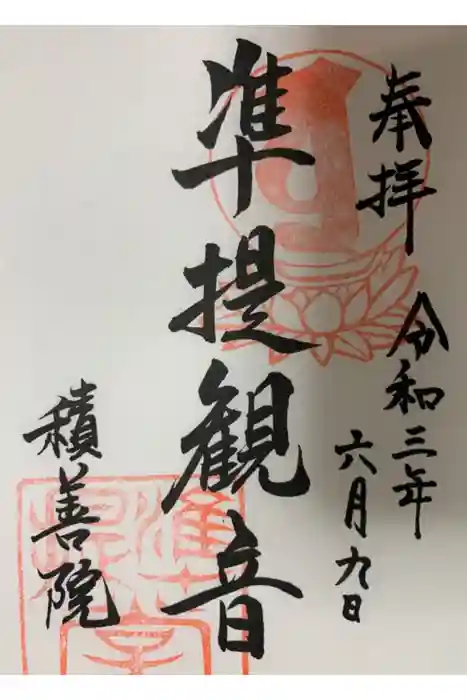 奉拝 令和三年
六月九日
準提観音
積善院